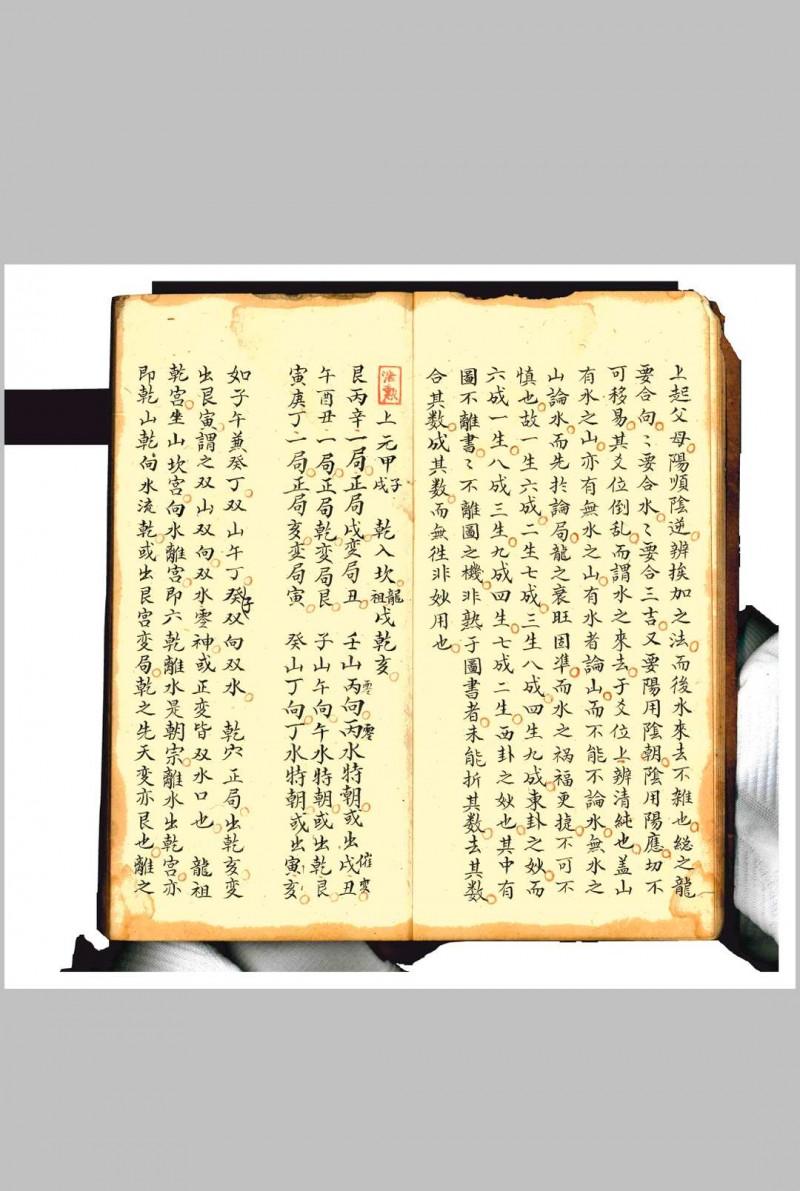 上起父母陽順陰逆辨挨加之法而後水來去不雜也總之龍
要合向〻要合水〻要合三吉又要陽用陰朝陰用陽應切不
可移易其爻位倒乱而謂水之來去于爻位上辨清純也盖山
有水之山亦有無水之山有水者論山而不能不論水無水之
山論水而先於論局龍之衰旺固準而水之禍福更捷不可不
慎也故一生六成二生七成三生八成四生九成東卦之妙而
六成一生八成三生九成四生七成二生西卦之妙也其中有
圖不離書〻不離圖之機非熟于圖書者未能折其數去其數
合其數成其數而無往非妙用也
上元甲子戌 乾入坎龍祖戌乾亥
艮丙辛一局正局戌変局丑 壬山丙向丙水特朝或出戌丑
午酉丑一局正局乾変局艮 子山午向午水特朝或出乾艮
寅庚丁一局正局亥変局寅 癸山丁向丁水特朝或出寅亥
如子午兼癸丁双山午丁癸子双向双水 乾穴正局出乾亥変
出艮寅謂之双山双向双水零神或正変皆双水口也 龍祖
乾宮坐山坎宮向水離宮即六乾離水是朝宗離水出乾宮亦
即乾山乾向水流乾或出艮宮変局乾之先天変亦艮也離之